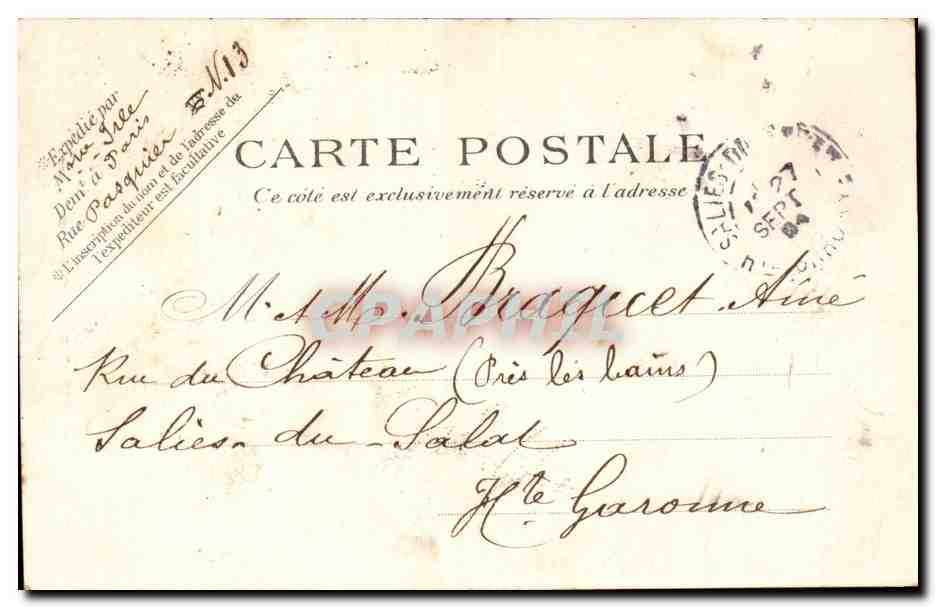 ※ Expédié par
Marie Irle
Demt à Paris
Rue Pasquier N. 13
※ L'inscription du nom et de l'adresse de
l'expéditeur est facultative
CARTE POSTALE
Ce côté est exclusivement réservé à l'adresse
SALIES-DU
27
SEPT
04
M. et Mme Braquet Aimé
CPAPHIL
Rue du Château (Près les bains)
Salies-du-Salat
Hte Garonne